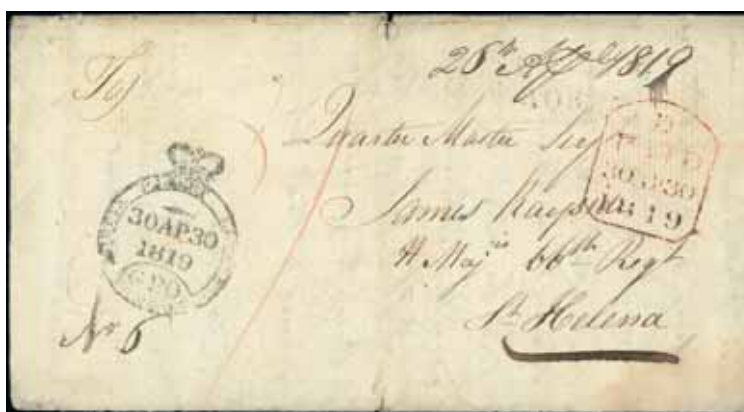 26th Apl 1819
To
Quarter Master Serjt
James
H. Maj's 66th Regt
St Helena
No 6
30AP30
1819
GPO
30 AP 30
1819